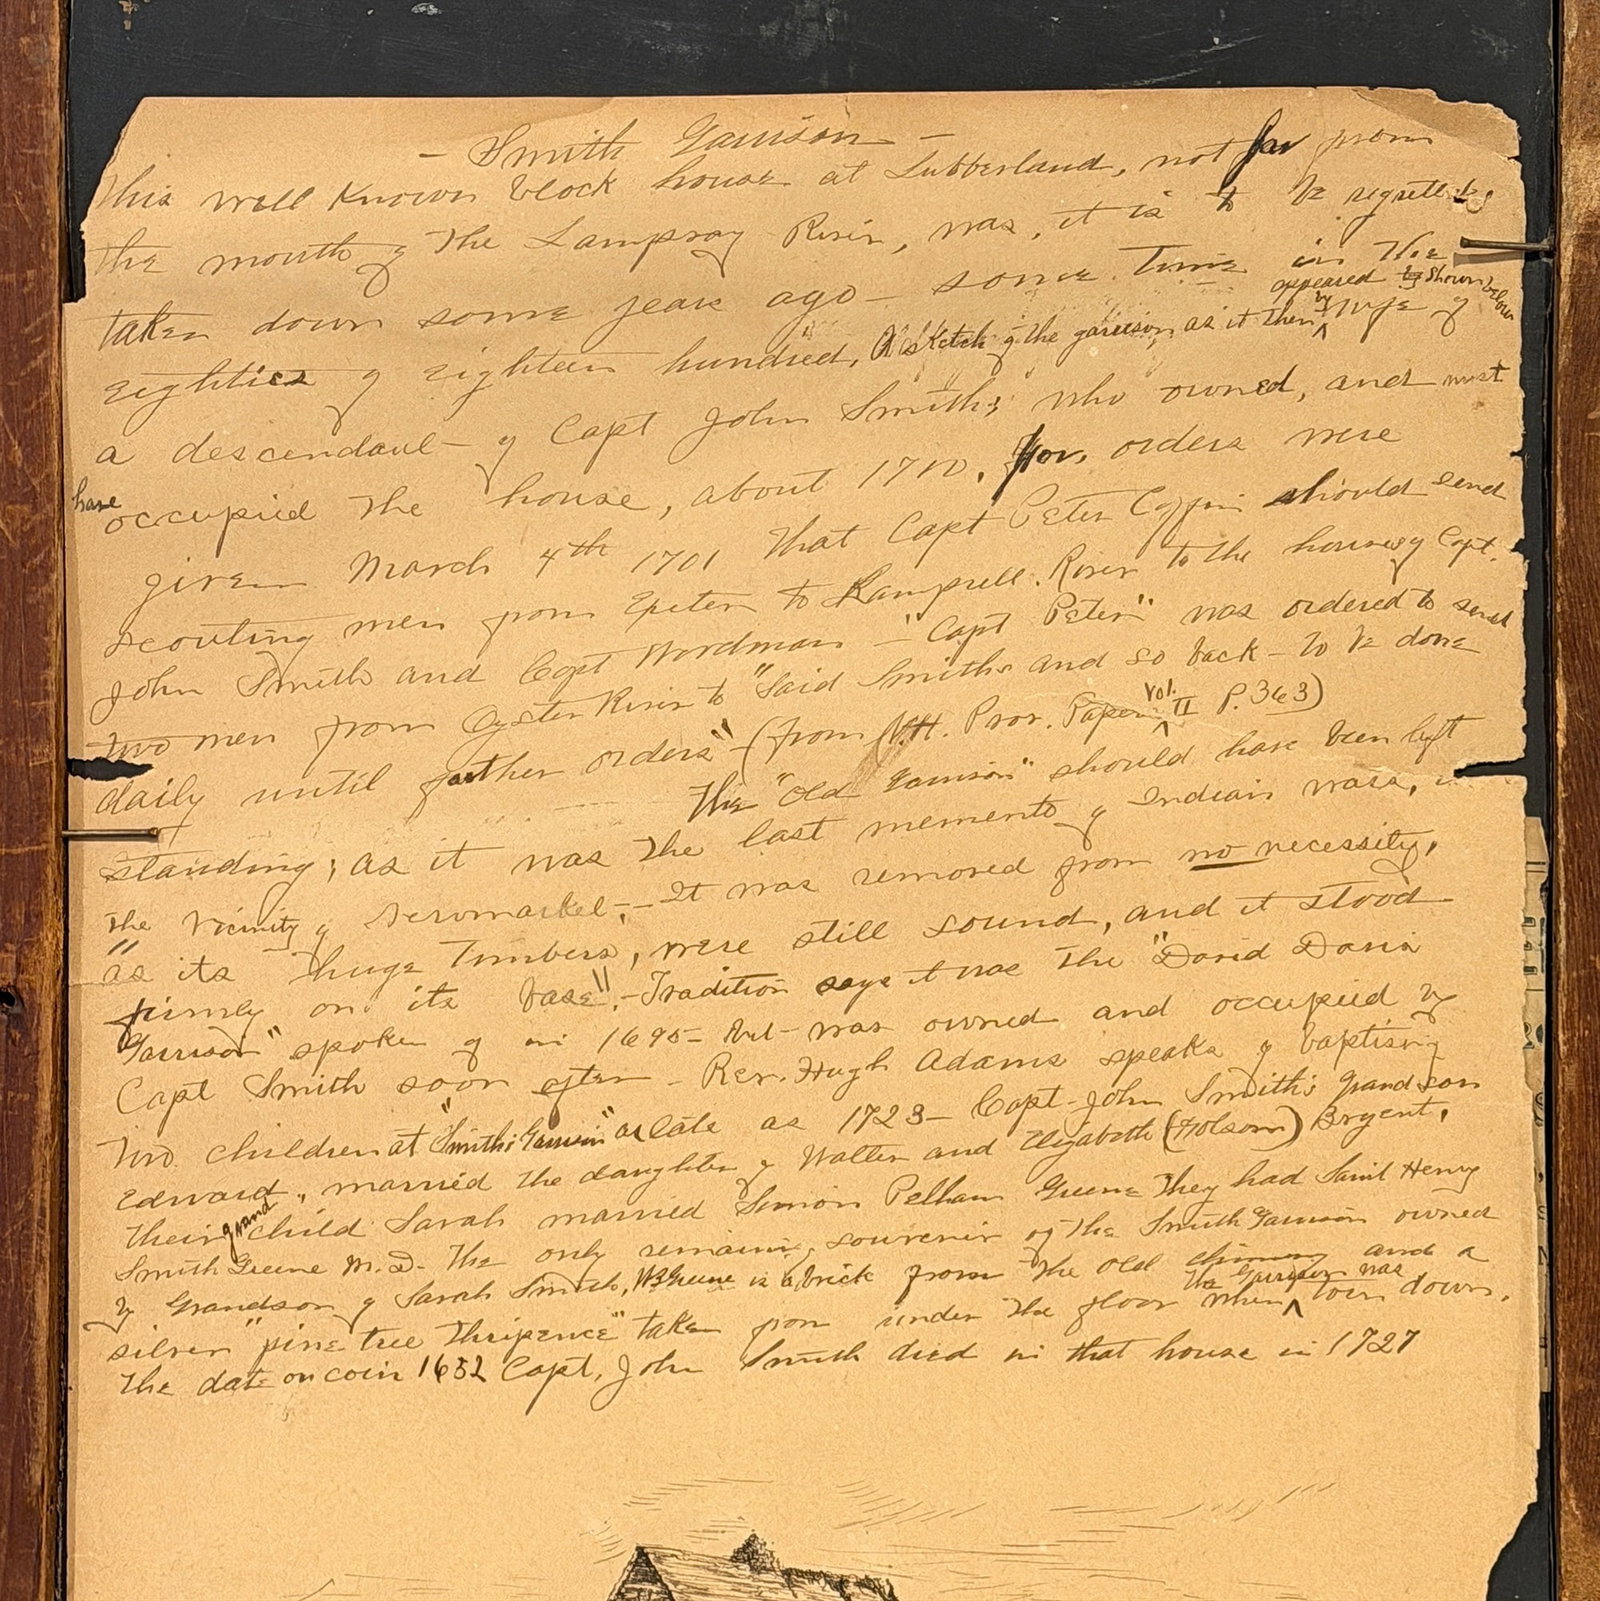 — Smith Garrison —
This well known block house at Lubberland, not far from
the mouth of the Lampray River, was, it is to be regretted
taken down some years ago — some time in the
appeared shown below
eighties of eighteen hundred, A sketch of the garrison, as it then by wife of
a descendant of Capt John Smith; who owned, and must
have occupied the house, about 1710, for, orders were
given March 4th 1701 that Capt Peter Coffin should send
scouting men from Exeter to Lamprell River to the house of Capt.
John Smith and Capt Wordman — "Capt Peter" was ordered to send
two men from Oyster River to "Said Smiths and so back — to be done
daily until further orders" — (from N.H. Prov. Papers Vol. II P. 363)
The "Old Garrison" should have been left
standing; as it was the last memento of Indian wars,
the vicinity of Newmarket; — It was removed from no necessity,
"as its huge timbers, were still sound, and it stood
firmly on its base". — Tradition says it was the "David Davis
Garrison" spoken of in 1695 — but was owned and occupied by
Capt Smith soon after — Rev. Hugh Adams speaks of baptising
two children at "Smith's Garrison" as late as 1723 — Capt. John Smith's grandson
Edward, married the daughter of Walter and Elizabeth (Folsom) Bryent,
their grand child Sarah married Simon Pelham Greene They had Saml Henry
Smith Greene M.D. The only remaining souvenir of the Smith Garrison owned
by Grandson of Sarah Smith, Greene is a brick from the old chimney and a
the Garrison was
silver "pine tree thripence" taken from under the floor when torn down.
The date on coin 1652 Capt, John Smith died in that house in 1727